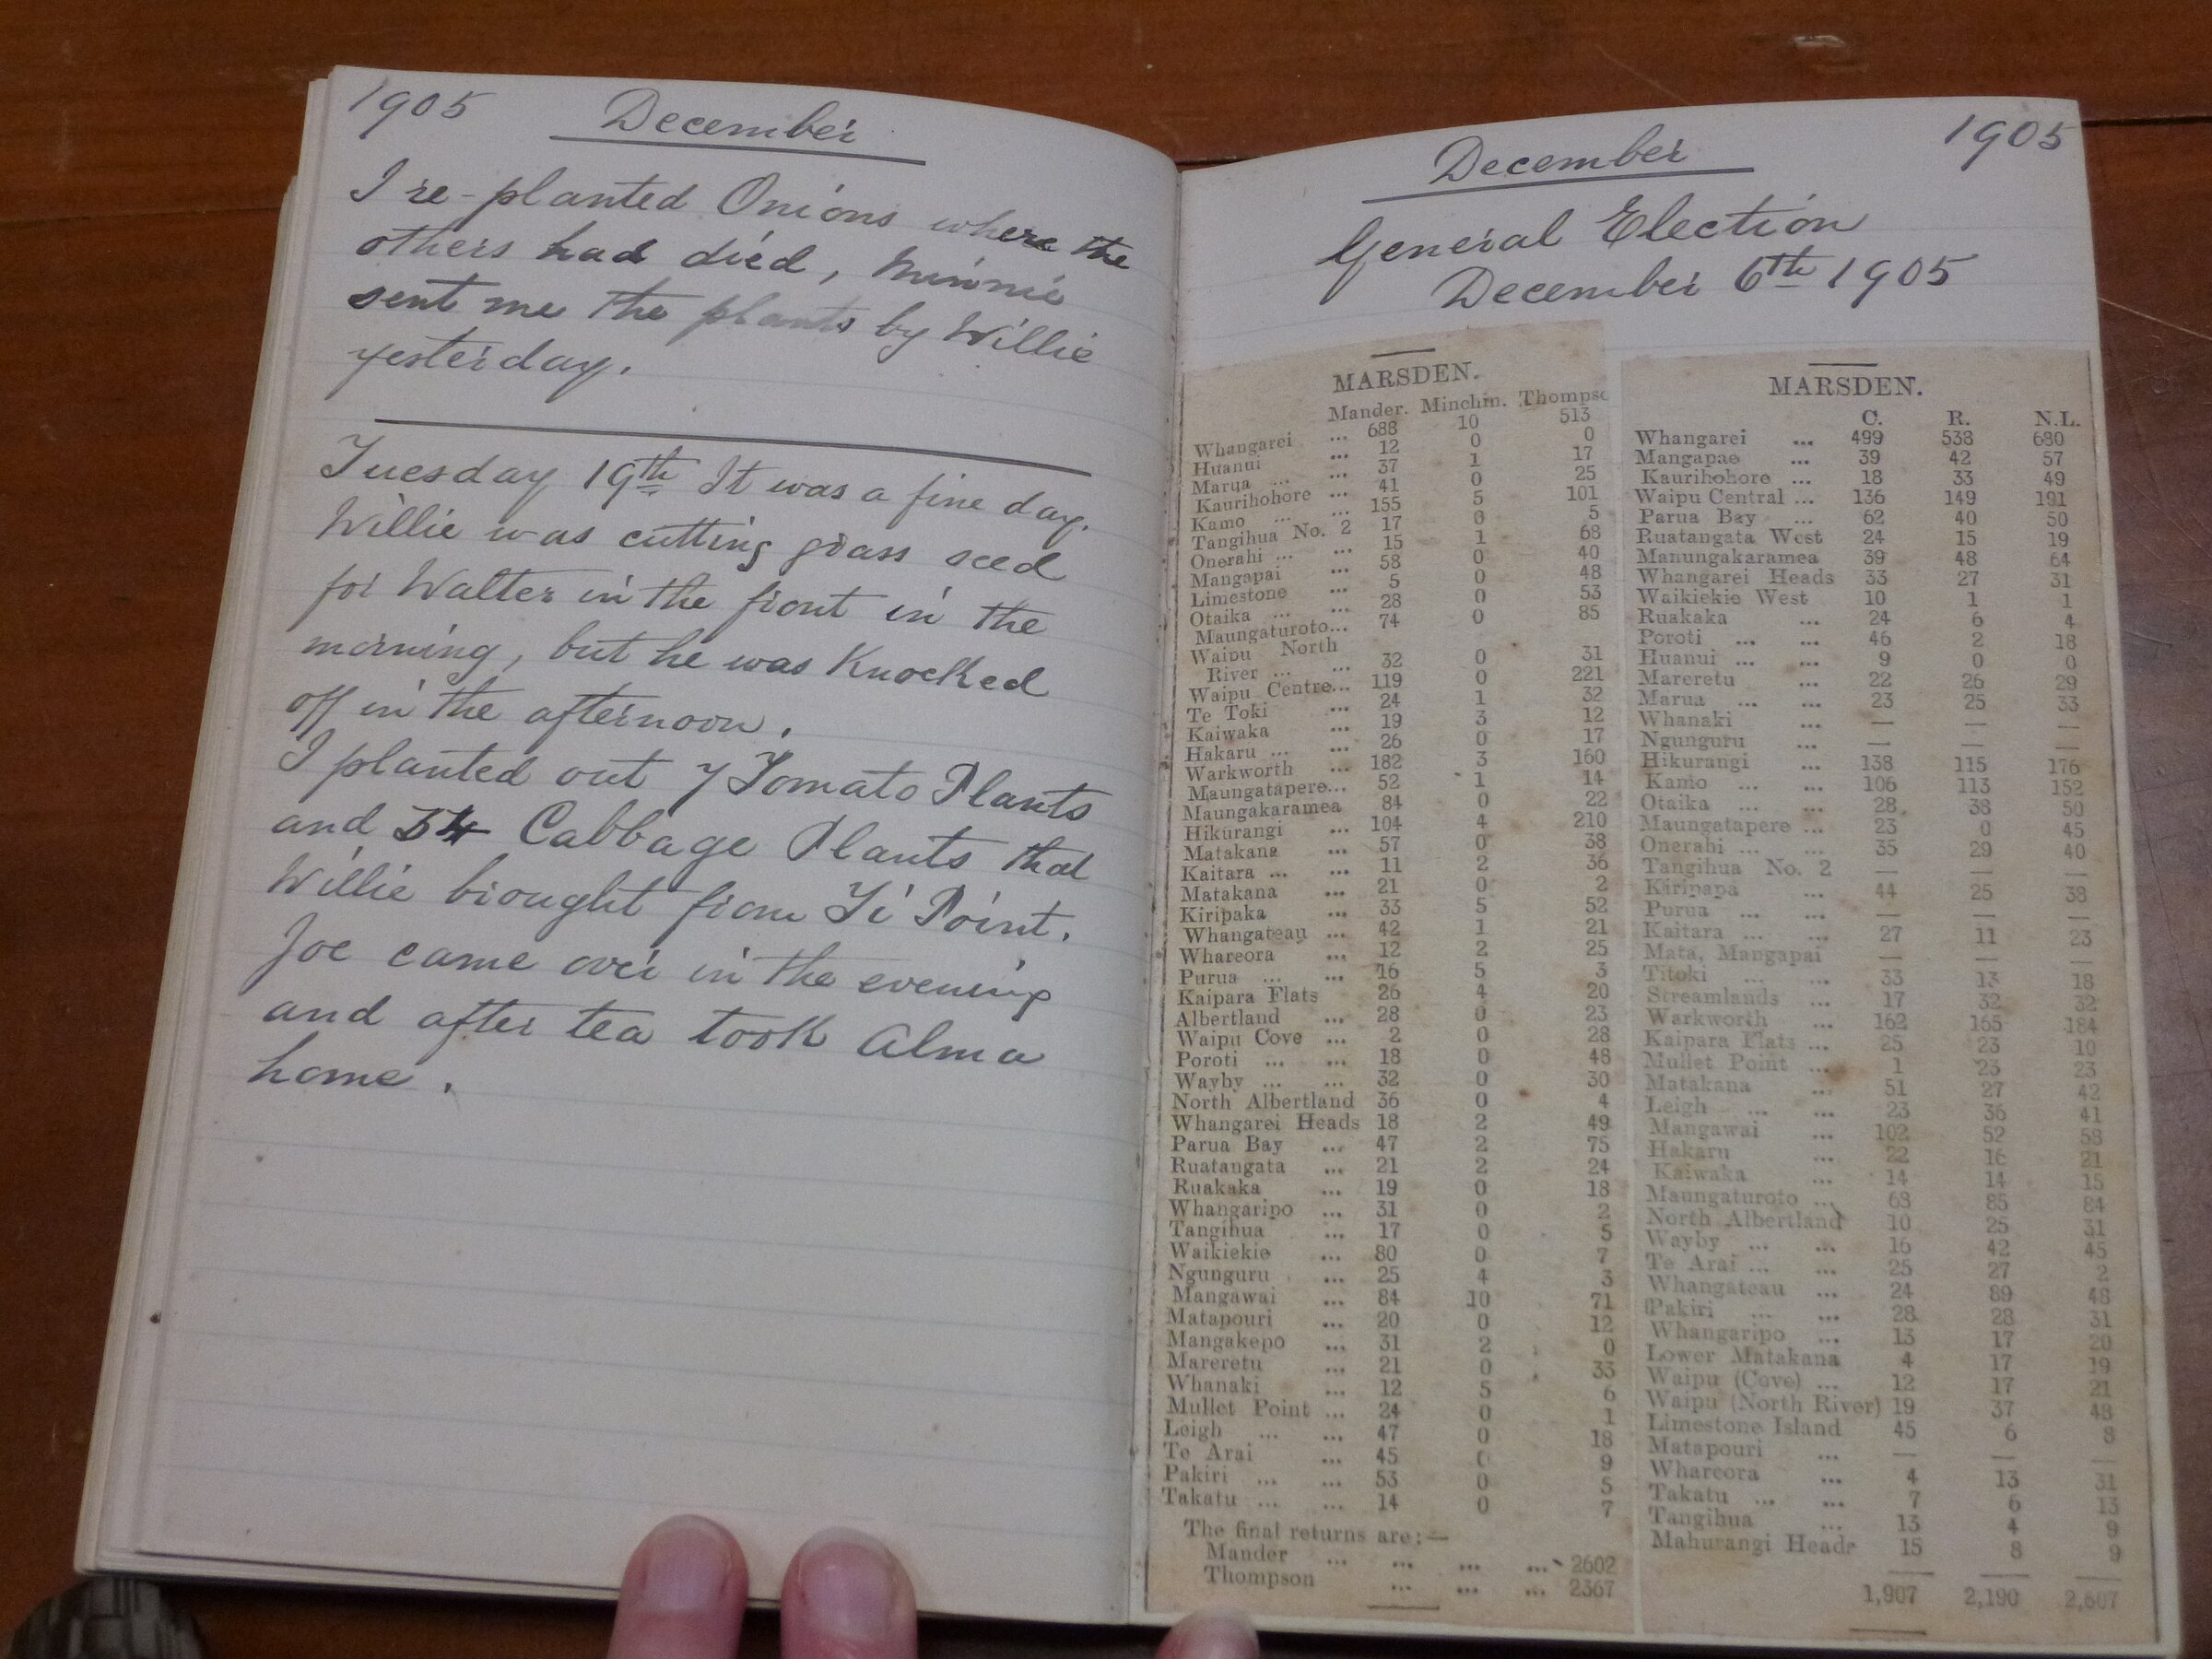 1905 December
I re-planted Onions where the
others had died, Minnie
sent me the plants by Willie
yesterday.
Tuesday 19th It was a fine day.
Willie was cutting grass seed
for Walter in the front in the
morning, but he was Knocked
off in the afternoon.
I planted out 7 Tomato Plants
and 34 Cabbage Plants that
Willie brought from Ti Point.
Joe came over in the evening
and after tea took Alma
home.
December 1905
General Election
December 6th 1905
MARSDEN.
Mander. Minchin. Thompso
Whangarei ... 688 10 513
Huanui ... 12 0 0
Marua ... ... 37 1 17
Kaurihohore ... 41 0 25
Kamo ... ... 155 5 101
Tangihua No. 2 17 0 5
Onerahi ... ... 15 1 68
Mangapai ... 58 0 40
Limestone ... 5 0 48
Otaika ... ... 28 0 53
Maungaturoto... 74 0 85
Waipu North
River ... ... 32 0 31
Waipu Centre... 119 0 221
Te Toki ... 24 1 32
Kaiwaka ... 19 3 12
Hakaru ... ... 26 0 17
Warkworth ... 182 3 160
Maungatapere... 52 1 14
Maungakaramea 84 0 22
Hikurangi ... 104 4 210
Matakana ... 57 0 38
Kaitara ... ... 11 2 36
Matakana ... 21 0 2
Kiripaka ... 33 5 52
Whangateau ... 42 1 21
Whareora ... 12 2 25
Purua ... ... 16 5 3
Kaipara Flats 26 4 20
Albertland ... 28 0 23
Waipu Cove ... 2 0 28
Poroti ... ... 18 0 48
Wayby ... ... 32 0 30
North Albertland 36 0 4
Whangarei Heads 18 2 49
Parua Bay ... 47 2 75
Ruatangata ... 21 2 24
Ruakaka ... 19 0 18
Whangaripo ... 31 0 2
Tangihua ... 17 0 5
Waikiekie ... 80 0 7
Ngunguru ... 25 4 3
Mangawai ... 84 10 71
Matapouri ... 20 0 12
Mangakepo ... 31 2 0
Mareretu ... 21 0 33
Whanaki ... 12 5 6
Mullet Point ... 24 0 1
Leigh ... ... 47 0 18
Te Arai ... 45 0 9
Pakiri ... ... 53 0 5
Takatu ... ... 14 0 7
The final returns are:—
Mander ... ... ... ... 2602
Thompson ... ... ... 2367
MARSDEN.
C. R. N.L.
Whangarei ... 499 538 680
Mangapae ... 39 42 57
Kaurihohore ... 18 33 49
Waipu Central ... 136 149 191
Parua Bay ... 62 40 50
Ruatangata West 24 15 19
Manungakaramea 39 48 64
Whangarei Heads 33 27 31
Waikiekie West 10 1 1
Ruakaka ... 24 6 4
Poroti ... ... 46 2 18
Huanui ... ... 9 0 0
Mareretu ... 22 26 29
Marua ... ... 23 25 33
Whanaki ... — — —
Ngunguru ... — — —
Hikurangi ... 138 115 176
Kamo ... ... 106 113 152
Otaika ... ... 28 38 50
Maungatapere ... 23 0 45
Onerahi ... ... 35 29 40
Tangihua No. 2 — — —
Kiripapa ... 44 25 38
Purua ... ... — — —
Kaitara ... ... 27 11 23
Mata, Mangapai — — —
Titoki ... ... 33 13 18
Streamlands ... 17 32 32
Warkworth ... 162 165 184
Kaipara Flats ... 25 23 10
Mullet Point ... 1 23 23
Matakana ... 51 27 42
Leigh ... ... 23 36 41
Mangawai ... 102 52 58
Hakaru ... 22 16 21
Kaiwaka ... 14 14 15
Maungaturoto ... 63 85 84
North Albertland 10 25 31
Wayby ... ... 16 42 45
Te Arai ... ... 25 27 2
Whangateau ... 24 89 48
Pakiri ... ... 28 28 31
Whangaripo ... 13 17 20
Lower Matakana 4 17 19
Waipu (Cove) ... 12 17 21
Waipu (North River) 19 37 48
Limestone Island 45 6 8
Matapouri ... — — —
Whareora ... 4 13 31
Takatu ... ... 7 6 13
Tangihua ... 13 4 9
Mahurangi Heads 15 8 9
1,907 2,190 2,607